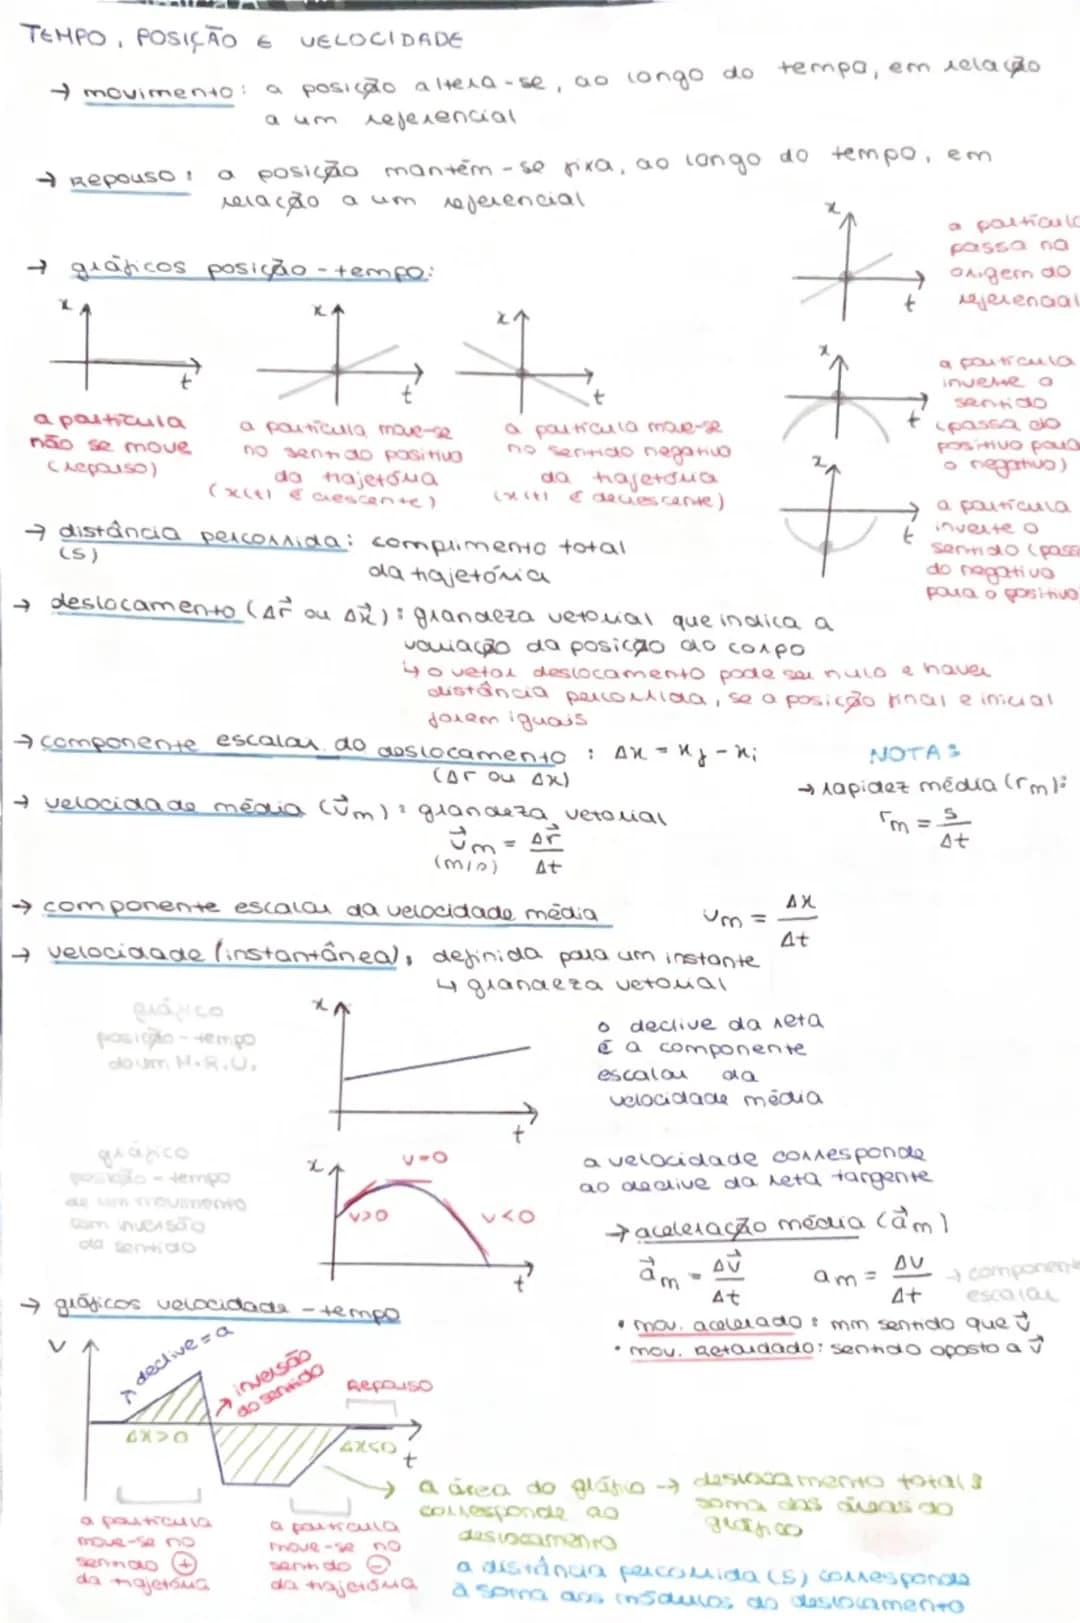 TEMPO, POSIÇÃO E VELOCIDADE
→ movimento: a posição altera-se, ao longo do tempo, em relação
a um referencial
→ Repouso: a posição mantém-se fixa, ao longo do tempo, em
relação a um referencial
→ gráficos posição-tempo:
x
t
a partícula
não se move
(repouso)
x
t
a partícula move-se
no sentido positivo
da trajetória
(x(t) é crescente)
x
t
a partícula move-se
no sentido negativo
da trajetória
(x(t) é decrescente)
x
t
a partícula
passa na
origem do
referencial
x
t
a partícula
inverte o
sentido
(passa do
positivo para
o negativo)
x
t
a partícula
inverte o
sentido (passa
do negativo
para o positivo)
→ distância percorrida: comprimento total
(s)
da trajetória
→ deslocamento (Δr⃗ ou Δx⃗): grandeza vetorial que indica a
variação da posição do corpo
↳ o vetor deslocamento pode ser nulo e haver
distância percorrida, se a posição final e inicial
forem iguais
→ componente escalar do deslocamento : Δx = xf - xi
(Δr ou Δx)
NOTAS
→ rapidez média (rm):
rm = s/Δt
→ velocidade média (v⃗m): grandeza vetorial
v⃗m = Δr⃗/Δt
(m/s)
→ componente escalar da velocidade média
vm = Δx/Δt
→ velocidade (instantânea), definida para um instante
↳ grandeza vetorial
gráfico
posição-tempo
do um M.R.U.
x
t
o declive da reta
é a componente
escalar da
velocidade média
gráfico
posição-tempo
de um movimento
com inversão
do sentido
x
v>0
v=0
v<0
t
a velocidade corresponde
ao declive da reta targente
→ aceleração média (a⃗m)
a⃗m = Δv⃗/Δt
am = Δv/Δt → componente
escalar
• mov. acelerado: mm sentido que v⃗
• mov. Retardado: sentido oposto a v⃗
→ gráficos velocidade-tempo
v
↗ declive = a
→ inversão
do sentido
Repouso
Δx>0
Δx<0
t
a partícula
move-se no
sentido +
da trajetória
a partícula
move-se no
sentido -
da trajetória
→ a área do gráfio → deslocamento total:
corresponde ao
deslocamento
soma das áreas do
gráfico
a distância percorrida (s) corresponde
à soma dos módulos do deslocamento